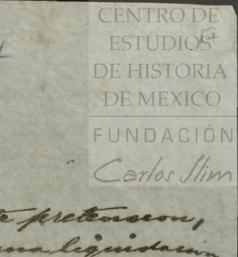 CENTRO DE
ESTUDIOS
DE HISTORIA
DE MEXICO
FUNDACIÓN
Carlos Slim
te pretension,
una liquidacion